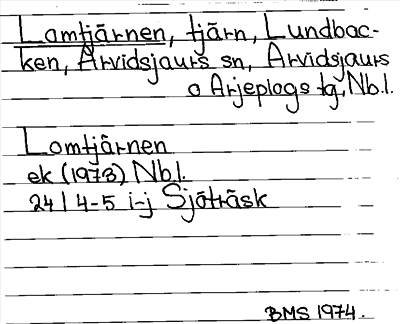 Lomtjärnen, tjärn, Lundbac-
ken, Arvidsjaurs sn, Arvidsjaurs
o Arjeplogs tg, Nb.l.
Lomtjärnen
ek (1973) Nb.l.
24 I 4-5 i-j Sjöträsk
BMS 1974.